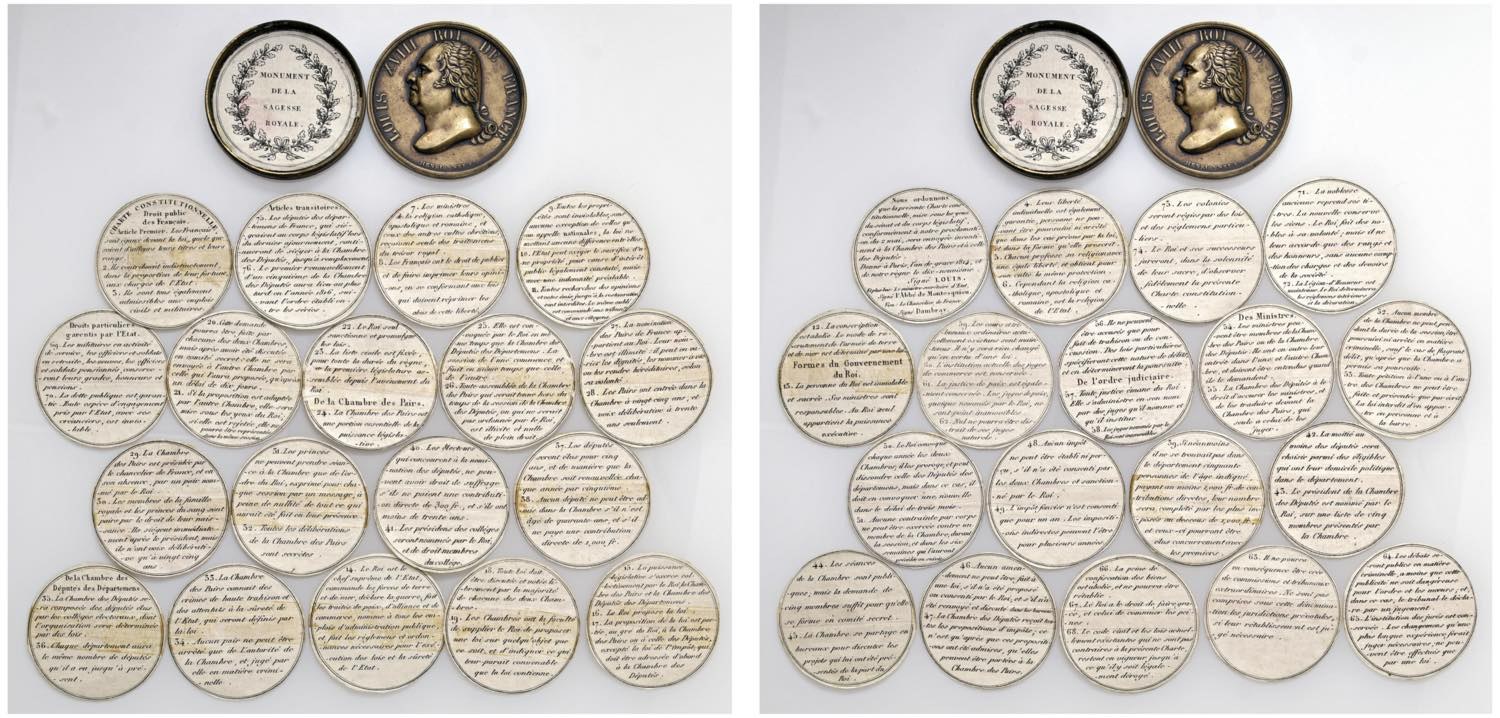 MONUMENT
DE LA
SAGESSE
ROYALE.
LOUIS XVIII ROI DE FRANCE
CHARTE CONSTITUTIONNELLE
Droit public
des Français.
Article Premier. Les Français
sont égaux devant la loi, quels que
soient d'ailleurs leurs titres et leurs
rangs.
2. Ils contribuent indistinctement,
dans la proportion de leur fortune,
aux charges de l'Etat.
3. Ils sont tous également
admissibles aux emplois
civils et militaires.
Articles transitoires.
75. Les députés des dépar-
-temens de France, qui sié-
-geaient au corps législatif lors
du dernier ajournement, conti-
-nueront de siéger à la Chambre
des Députés, jusqu'à remplacement.
76. Le premier renouvellement
d'un cinquième de la Chambre
des Députés aura lieu au plus
tard en l'année 1816, sui-
-vant l'ordre établi en-
-tre les séries.
7. Les ministres
de la religion catholique,
apostolique et romaine, et
ceux des autres cultes chrétiens,
reçoivent seuls des traitemens
du trésor royal.
8. Les Français ont le droit de publier
et de faire imprimer leurs opini-
-ons, en se conformant aux lois
qui doivent réprimer les
abus de cette liberté.
9. Toutes les propri-
-étés sont inviolables, sans
aucune exception de celles qu'on
appelle nationales, la loi ne
mettant aucune différence entre elles.
10. l'Etat peut exiger le sacrifice d'u-
-ne propriété, pour cause d'intérêt
public légalement constaté, mais
avec une indemnité préalable.
11. Toutes recherches des opinions
et votes émis jusqu'à la restauration
sont interdites. Le même oubli
est commandé aux tribunaux
Droits particuliers
garantis par l'Etat.
69. Les militaires en activité
de service, les officiers et soldats
en retraite, les veuves, les officiers
et soldats pensionnés, conserve-
-ront leurs grades, honneurs et
pensions.
70. La dette publique est garan-
-tie. Toute espèce d'engagement
pris par l'Etat, avec ses
créanciers, est invio-
-lable.
20. Cette demande
pourra être faite par
chacune des deux Chambres,
mais après avoir été discutée
en comité secret: elle ne sera
envoyée à l'autre Chambre par
celle qui l'aura proposée, qu'après
un délai de dix jours.
21. Si la proposition est adoptée
par l'autre Chambre, elle sera
mise sous les yeux du Roi;
si elle est rejetée, elle ne
pourra être représentée
dans la même session.
22. Le Roi seul
sanctionne et promulgue
les lois.
23. La liste civile est fixée
pour toute la durée du règne
par la première législature as-
-semblée depuis l'avènement du
Roi.
De la Chambre des Pairs.
24. La Chambre des Pairs est
une portion essentielle de la
puissance législa-
-tive.
25. Elle est con-
-voquée par le Roi en mê-
-me temps que la Chambre des
Députés des Départemens. La
session de l'une commence et
finit en même temps que celle
de l'autre.
26. Toute assemblée de la Chambre
des Pairs qui serait tenue hors du
temps de la session de la Chambre
des Députés, ou qui ne serait
pas ordonnée par le Roi, est
illicite et nulle
de plein droit.
27. La nomination
des Pairs de France ap-
-partient au Roi. Leur nom-
-bre est illimité: il peut en va-
-rier les dignités, les nommer à vie
ou les rendre héréditaires, selon
sa volonté.
28. Les Pairs ont entrée dans la
Chambre à vingt cinq ans, et
voix délibérative à trente
ans seulement.
29. La Chambre
des Pairs est présidée par
le chancelier de France, et en
son absence, par un pair nom-
-mé par le Roi.
30. Les membres de la famille
royale et les princes du sang sont
pairs par le droit de leur nais-
-sance. Ils siègent immédiate-
-ment après le président, mais
ils n'ont voix délibérati-
-ve qu'à vingt cinq
ans.
31. Les princes
ne peuvent prendre séan-
-ce à la Chambre que de l'or-
-dre du Roi, exprimé pour cha-
-que session par un message, à
peine de nullité de tout ce qui
aurait été fait en leur présence.
32. Toutes les délibérations
de la Chambre des Pairs
sont secrètes.
40. Les électeurs
qui concourent à la nomi-
-nation des députés, ne peu-
-vent avoir droit de suffrage
s'ils ne paient une contributi-
-on directe de 300 fr., et s'ils ont
moins de trente ans.
41. Les présidens des collèges
seront nommés par le Roi,
et de droit membres
du collège.
37. Les députés
seront élus pour cinq
ans, et de manière que la
Chambre soit renouvellée, cha-
-que année par cinquième.
38. Aucun député ne peut être ad-
-mis dans la Chambre s'il n'est
âgé de quarante ans, et s'il
ne paye une contribution
directe de 1,000 fr.
De la Chambre des
Députés des Départemens.
35. La Chambre des Députés se-
-ra composée des députés élus
par les collèges électoraux, dont
l'organisation sera déterminée
par des lois.
36. Chaque département aura
le même nombre de députés
qu'il a eu jusqu'à pré-
-sent.
33. La Chambre
des Pairs connait des
crimes de haute trahison et
des attentats à la sûreté de
l'Etat, qui seront définis par
la loi.
34. Aucun pair ne peut être
arrêté que de l'autorité de
la Chambre, et jugé par
elle en matière crimi-
-nelle.
14. Le Roi est le
chef suprême de l'Etat,
commande les forces de terre
et de mer, déclare la guerre, fait
les traités de paix, d'alliance et de
commerce, nomme à tous les em-
-plois d'administration publique,
et fait les réglemens et ordon-
-nances nécessaires pour l'exé-
-cution des lois et la sûreté
de l'Etat.
18. Toute loi doit
être discutée et votée li-
-brement par la majorité
de chacune des deux Cham-
-bres.
19. Les Chambres ont la faculté
de supplier le Roi de proposer
une loi sur quelqu'objet que
ce soit, et d'indiquer ce qui
leur parait convenable
que la loi contienne.
15. La puissance
législative s'exerce col-
-lectivement par le Roi, la Cham-
-bre des Pairs et la Chambre des
Députés des Départemens.
16. Le Roi propose la loi.
17. La proposition de la loi est por-
-tée, au gré du Roi, à la Chambre
des Pairs ou à celle des Députés,
excepté la loi de l'impôt, qui
doit être adressée d'abord
à la Chambre des
Députés.
MONUMENT
DE LA
SAGESSE
ROYALE.
LOUIS XVIII ROI DE FRANCE
Nous ordonnons
que la présente Charte cons-
-titutionnelle, mise sous les yeux
du sénat et du corps législatif,
conformément à notre proclamation
du 2 mai, sera envoyée inconti-
-nent à la Chambre des Pairs et à celle
des Députés.
Donné à Paris, l'an de grace 1814, et
de notre règne le dix-neuvième.
Signé LOUIS.
Signé l'Abbé de Montesquiou
Vu: Le Chancelier de France,
Signé Dambray.
4. Leur liberté
individuelle est également
garantie, personne ne pou-
-vant être poursuivi ni arrêté
que dans les cas prévus par la loi,
et dans la forme qu'elle prescrit.
5. Chacun professe sa religion avec
une égale liberté, et obtient pour
son culte la même protection.
6. Cependant la religion ca-
-tholique, apostolique et
romaine, est la religion
de l'Etat.
73. Les colonies
seront régies par des lois
et des réglemens particu-
-liers.
74. Le Roi et ses successeurs
jureront, dans la solennité
de leur sacre, d'observer
fidèlement la présente
Charte constitution-
-nelle.
71. La noblesse
ancienne reprend ses ti-
-tres. La nouvelle conserve
les siens. Le Roi fait des no-
-bles à sa volonté; mais il ne
leur accorde que des rangs et
des honneurs, sans aucune exemp-
-tion des charges et des devoirs
de la société.
72. La Légion-d'Honneur est
maintenue. Le Roi déterminera
les réglemens intérieurs
et la décoration.
12. La conscription
est abolie. Le mode de re-
-crutement de l'armée de terre
et de mer est déterminé par une loi
Formes du Gouvernement
du Roi.
13. La personne du Roi est inviolable
et sacrée. Ses ministres sont
responsables. Au Roi seul
appartient la puissance
exécutive.
59. Les cours et tri-
-bunaux ordinaires actu-
-ellement existans sont main-
-tenus. Il n'y sera rien changé
qu'en vertu d'une loi.
60. L'institution actuelle des juges
de commerce est conservée.
61. La justice de paix est égale-
-ment conservée. Les juges de paix,
quoique nommés par le Roi, ne
sont point inamovibles.
62. Nul ne pourra être dis-
-trait de ses juges
naturels.
56. Ils ne peuvent
être accusés que pour
fait de trahison ou de con-
-cussion. Des lois particulières
spécifieront cette nature de délits,
et en détermineront la poursuite.
De l'ordre judiciaire.
57. Toute justice émane du Roi
Elle s'administre en son nom
par des juges qu'il nomme et
institue.
58. Les juges nommés par le
Roi sont inamovibles.
Des Ministres.
54. Les ministres peu-
-vent être membres de la Cham-
-bre des Pairs ou de la Chambre
des Députés. Ils ont en outre leur
entrée dans l'une et l'autre Cham-
-bre, et doivent être entendus quand
ils le demandent.
55. La Chambre des Députés à le
droit d'accuser les ministres, et
de les traduire devant la
Chambre des Pairs, qui
seule a celui de les
juger.
52. Aucun membre
de la Chambre ne peut, pen-
-dant la durée de la session, être
poursuivi ni arrêté en matière
criminelle, sauf le cas de flagrant
délit, qu'après que la Chambre a
permis sa poursuite.
53. Toute pétition à l'une ou à l'au-
-tre des Chambres ne peut être
faite et présentée que par écrit.
La loi interdit d'en appor-
-ter en personne et à
la barre.
50. Le Roi convoque
chaque année les deux
Chambres; il les proroge, et peut
dissoudre celle des Députés des
départemens, mais dans ce cas, il
doit en convoquer une nouvelle
dans le délai de trois mois.
51. Aucune contrainte par corps
ne peut être exercée contre un
membre de la Chambre, durant
la session, et dans les six
semaines qui l'auront
précédée ou suivie.
48. Aucun impôt
ne peut être établi ni per-
-çu, s'il n'a été consenti par
les deux Chambres et sanction-
-né par le Roi.
49. L'impôt foncier n'est consenti
que pour un an. Les impositi-
-ons indirectes peuvent l'être
pour plusieurs an-
-nées.
39. Si néanmoins
il ne se trouvait pas dans
le département cinquante
personnes de l'âge indiqué,
payant au moins 1,000 fr. de con-
-tributions directes, leur nombre
sera complété par les plus im-
-posés au dessous de 1,000 fr.,
et ceux-ci pourront être
élus concurremment avec
les premiers.
42. La moitié au
moins des députés sera
choisie parmi des éligibles
qui ont leur domicile politique
dans le département.
43. Le président de la Chambre
des Députés est nommé par le
Roi, sur une liste de cinq
membres présentés par
la Chambre.
44. Les séances
de la Chambre sont publi-
-ques, mais la demande de
cinq membres suffit pour qu'elle
se forme en comité secret.
45. La Chambre se partage en
bureaux pour discuter les
projets qui lui ont été pré-
-sentés de la part du
Roi.
46. Aucun amen-
-dement ne peut être fait à
une loi, s'il n'a été proposé
ou consenti par le Roi, et s'il n'a
été renvoyé et discuté dans les bureaux
47. La Chambre des Députés reçoit tou-
-tes les propositions d'impôts; ce
n'est qu'après que ces propositi-
-ons ont été admises, qu'elles
peuvent être portées à la
Chambre des Pairs.
66. La peine de
confiscation des biens est
abolie, et ne pourra être
rétablie.
67. Le Roi a le droit de faire gra-
-ce, et celui de commuer les pei-
-nes.
68. Le code civil et les lois actuel-
-lement existantes qui ne sont pas
contraires à la présente Charte,
restent en vigueur jusqu'à
ce qu'il y soit légale-
-ment dérogé.
63. Il ne pourra
en conséquence être créé
de commissions et tribunaux
extraordinaires. Ne sont pas
comprises sous cette dénomina-
-tion les juridictions prévôtales,
si leur rétablissement est ju-
-gé nécessaire.
64. Les débats se-
-ront publics en matière
criminelle, à moins que cette
publicité ne soit dangereuse
pour l'ordre et les mœurs; et
dans ce cas, le tribunal le décla-
-re par un jugement.
65. L'institution des jurés est con-
-servée. Les changemens qu'une
plus longue expérience ferait
juger nécessaires, ne peu-
-vent être effectués que
par une loi.